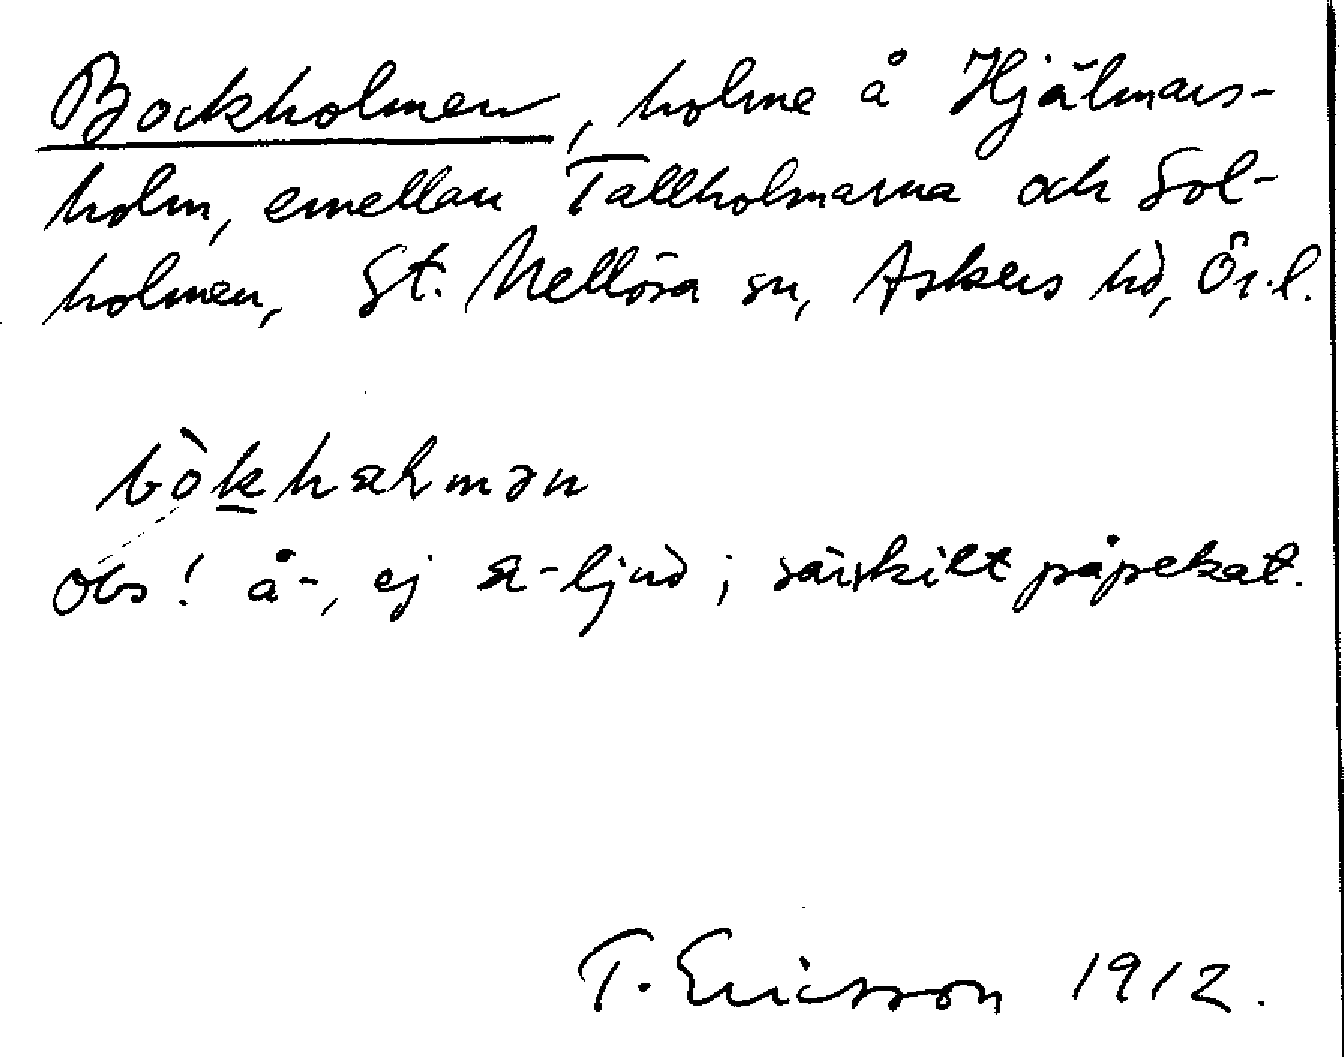 Bockholmen, holme å Hjälmars-
holm, emellan Tallholmarna och Sol-
holmen, St. Mellösa sn, Askers hd, Ör. l.
Obs! å-, ej -ljud; särskilt påpekat.
T. Ericsson 1912.